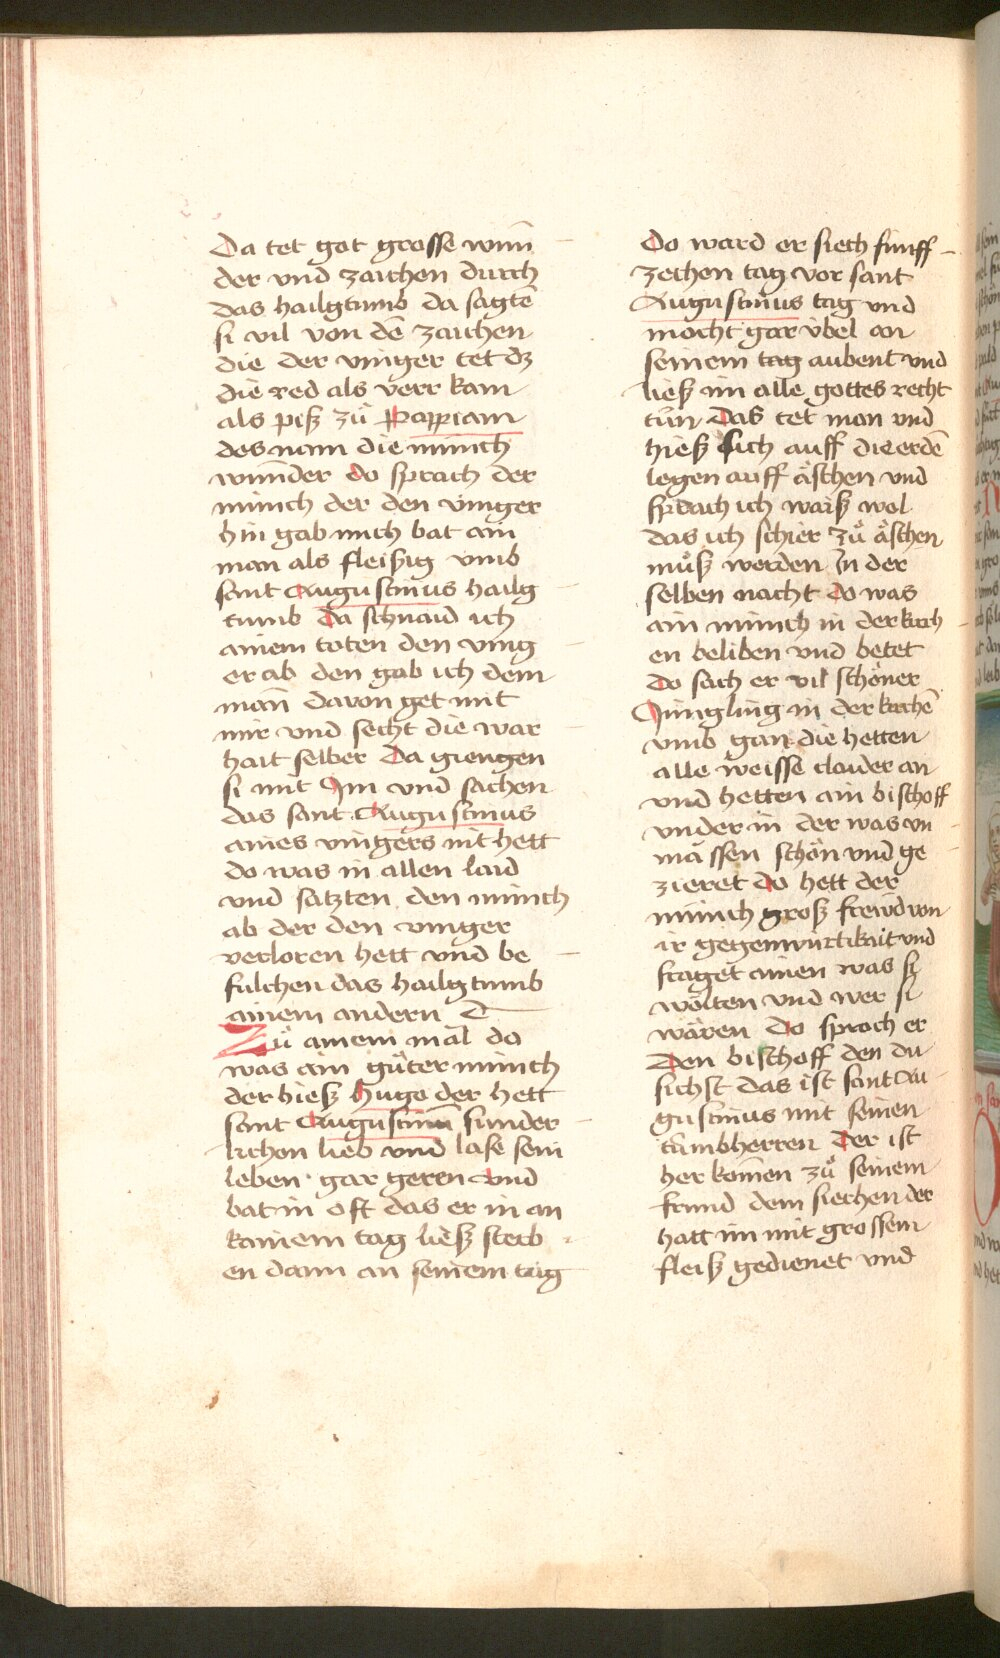 Da tet got grosse wun
der vnd zaichen durch
das hailgtumb da sagtē
si vil von dē zaichen
die der vinger tet dz
die red als verr kam
als pisz zů Pappiam
des nam die münich
wunder do sprach der
münich der den vinger
hin gab mich bat ain
man als fleisig vmb
sant Augustinus hailg
tumb Da schnaid ich
ainem toten den ving
er ab den gab ich dem
man davon get mit
mir vnd secht die war
hait selber Da giengen
si mit Im vnd sachen
das sant Augustinus
aines vingers nit hett
do was in allen laid
vnd satzten den münich
ab der den vinger
verloren hett vnd be
fulchen das hailgtumb
ainem andern
Zů ainem mal do
was ain gůter münch
der hiesz Hugo der hett
sant Augustinū sunder
lichen lieb vnd lase sein
leben gar geren Vnd
bat in oft das er in an
kainem tag liesz sterb
en dann an seinem tag
Do ward er siech fünff
zechen tag vor sant
Augustinus tag vnd
mocht gar vbel an
seinem tag aubent vnd
liesz im alle gottes recht
tůn Das tet man vnd
hiesz sich auff die erdē
legen auff äschen vnd
sprach ich waisz wol
das ich schier zů äschen
můsz werden In der
selben nacht Do was
ain münich in der kirch
en beliben vnd betet
do sach er vil schöner
Jüngling in der kirchē
vmb gan die hetten
alle weisse claider an
vnd hetten ain bischoff
vnder in der was vn
mässen schön vnd ge
zieret do hett der
münich grosz freüd von
ir gegenwürtikait vnd
fraget ainen was sy
wölten vnd wer si
wären Do sprach er
Den bischoff den du
sichst das ist sant Au
gustinus mit seinen
tůmbherren Der ist
her komen zů seinem
frund dem siechen der
hatt im mit grossem
fleisz gedienet vnd